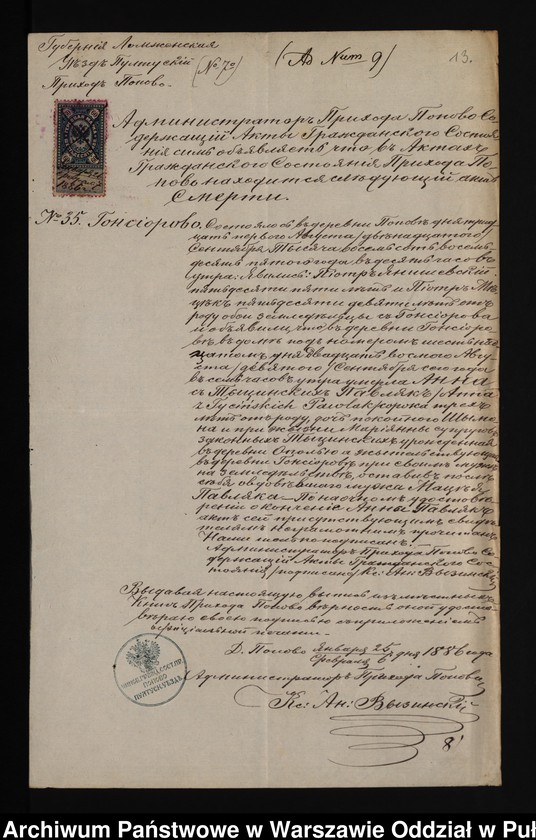 Губернія Ломжинская
Уѣздъ Пултускій
Приходъ Попово.
(№ 7й)
(Ad Num 9)
13.
1886 г.
Администраторъ Прихода Попово Со-
держащій Акты Гражданскаго Состоя-
нія симъ объявляетъ что въ Актахъ
Гражданскаго Состоянія Прихода По-
пово находится слѣдующій актъ
Смерти.
№ 35. Гонсіорово. Состоялось въ деревни Поповѣ дня трид-
цать перваго Августа /двѣнадцатого
Сентября Тысяча восемьсотъ восемь-
десятъ пятого года въ десять часовъ
утра: Явились: Піотръ Янишевскій
пятьдесяти пяти лѣтъ и Піотръ
пятьдесяти девяти лѣтъ отъ
роду оба земледѣльцы съ Гонсіорова
и объявили что въ деревни Гонсіоро-
вѣ въ домѣ подъ номеромъ
дня двадцать восьмого Авгу-
ста /девятого/ Сентября сего года
въ семь часовъ утра умерла Анна
съ Тыщинскихъ Павлякъ /Anna
z Pawlak/ сорока трехъ
лѣтъ отъ роду, дочь покойного Шымо-
на и при жизни Маріянны супруговъ
законныхъ Тыщинскихъ урожденная
въ деревни а жительствующая
въ деревни Гонсіоровѣ при своемъ мужѣ
на земледѣльствѣ, оставивъ послѣ
себя овдовѣвшого мужа
Павляка — По наочномъ удостовѣ-
реніи о кончинѣ Анны Павлякъ
актъ сей присутствующимъ свидѣ-
телямъ неграмотнымъ прочитанъ
Нами только подписанъ:
Администраторъ Прихода Попово Со-
держащій Акты Гражданскаго Сос-
тоянія /подписалъ/ Кс: Ан: Вызинскій
Выдавая настоящую выпись изъ мѣстныхъ
Книгъ Прихода Попово вѣрность оной удосто-
вѣряю своею подписью съ приложеніемъ
оффиціальной печати.
Д. Попово Января 25 / Февраля 6 дня 1886 года
Администраторъ Прихода Попово
Кс: Ан: Вызинскій
8
ПОПОВО
ПУЛТУСК. УѢЗДЪ
Archiwum Państwowe w Warszawie Oddział w Puł